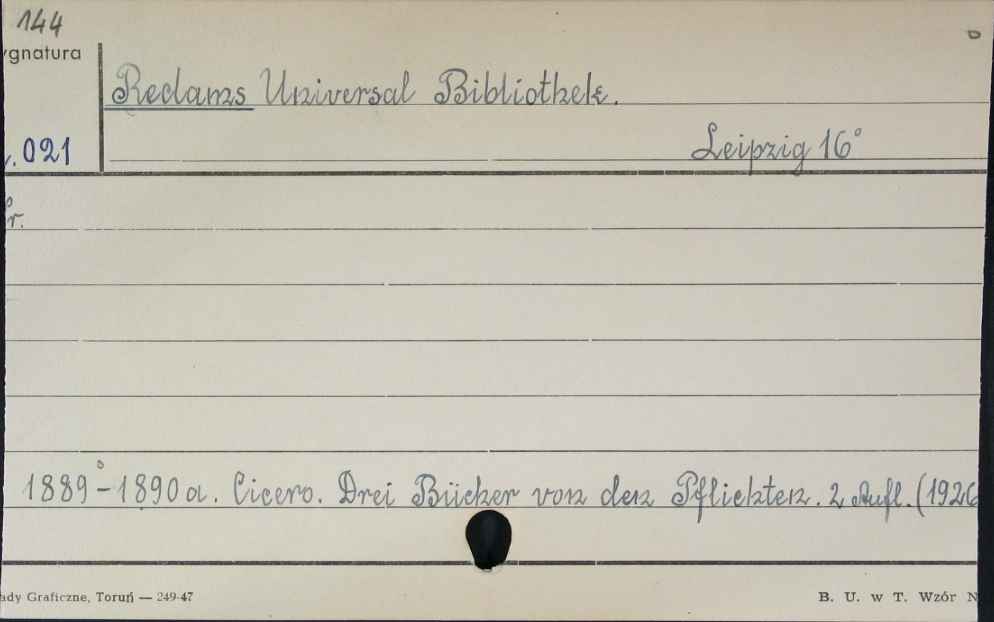 144
ygnatura
Reclams Universal Bibliothek.
. 021
Leipzig 16°
r.
1889-1890 a. Cicero. Drei Bücher von den Pflichten. 2 Aufl. (1926
ady Graficzne, Toruń — 249-47
B. U. w T. Wzór N